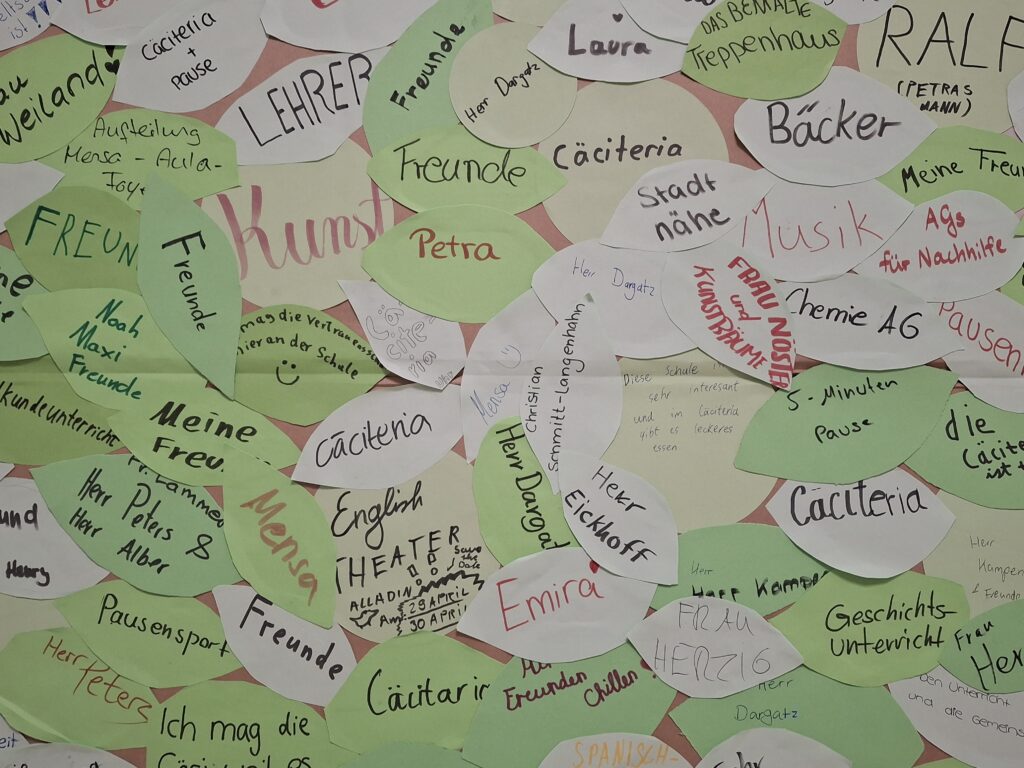 ist!
Cäciteria
+
Pause
Weiland
LEHRER
Freunde
Herr Dargatz
Laura
DAS BEMALTE
Treppenhaus
RALF
(PETRAS
MANN)
Aufteilung
Mensa - Aula-
Freunde
Cäciteria
Bäcker
Meine Freun
Stadt
nähe
FREUN
Freunde
Kunst
Petra
Herr Dargatz
Musik
AGs
für Nachhilfe
FRAU NÖSLER
und
KUNSTRÄUME
Chemie AG
Pausen
Noah
Maxi
Freunde
mag die Vertrauens
hier an der Schule
Cä
cite
ria
Mensa
Christian
Schmitt-Langenhahn
Diese Schule
sehr interesant
und im Cäciteria
gibt es leckeres
essen
5-Minuten
Pause
die
Cäcite
ist
kundeunterricht
Meine
Freu
Cäciteria
Herr Dargat
Herr
Eickhoff
Cäciteria
und
Herr Peters &
Herr Alber
Mensa
English
THEATER
Save
the
Date
ALLADIN
Am
29 APRIL
30 APRIL
Emira
Herr
Herr Kamper
Herr
Kamper
Freunde
Pausensport
Freunde
FRAU
HERZIG
Geschichts-
unterricht
Frau
Her
Herr Peters
Cäcitarir
Freunden
Chillen!
Herr
Dargatz
den Unterricht
und die Gemeins
Ich mag die
Cäci weil es
SPANISCH-